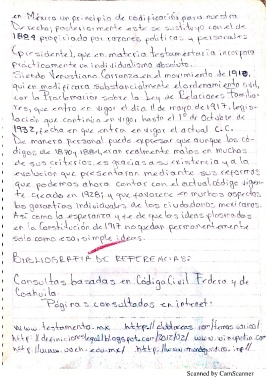 en México un principio de codificación para nuestro
Derecho, posteriormente este se sustituyo con el de
1884 propiciado por razones politicas y personales
(presidente), que en materia testamentaria incorpora
prácticamente un individualismo absoluto.
Siendo Venustiano Carranza en el movimiento de 1910,
quien modificara substancialmente el ordenamiento civil,
con la Proclamación sobre la Ley de Relaciones Familia-
res, vigente en el día 11 de mayo de 1917, legis-
lación que continúo en vigor hasta el 1° de Octubre de
1932, fecha en que entra en vigor el actual C.C.
De manera personal puedo expresar que aunque los có-
digos de 1870 y 1884, eran realmente malos en muchos
de sus criterios, es gracias a su existencia y a la
evolución que presentaron mediante sus reformas
que podemos ahora contar con el actual código vigen-
te creado en 1928; y que favorece en muchos aspectos
las garantías individuales de los ciudadanos mexicanos.
Así como la esperanza y fe de que las ideas plasmadas
en la Constitución de 1917 no quedan permanentemente
solo como esa: simple ideas.
BIBLIOGRAFIA DE REFERENCIAS:
Consultas basadas en Código Civil Federa y de
Coahuila.
Páginas consultados en internet:
www.testamento.mx
Scanned by CamScanner